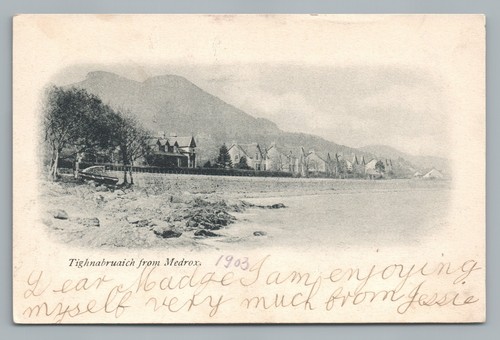 Tighnabruaich from Medrox.
1903
Dear Madge I am enjoying
myself very much from Jessie